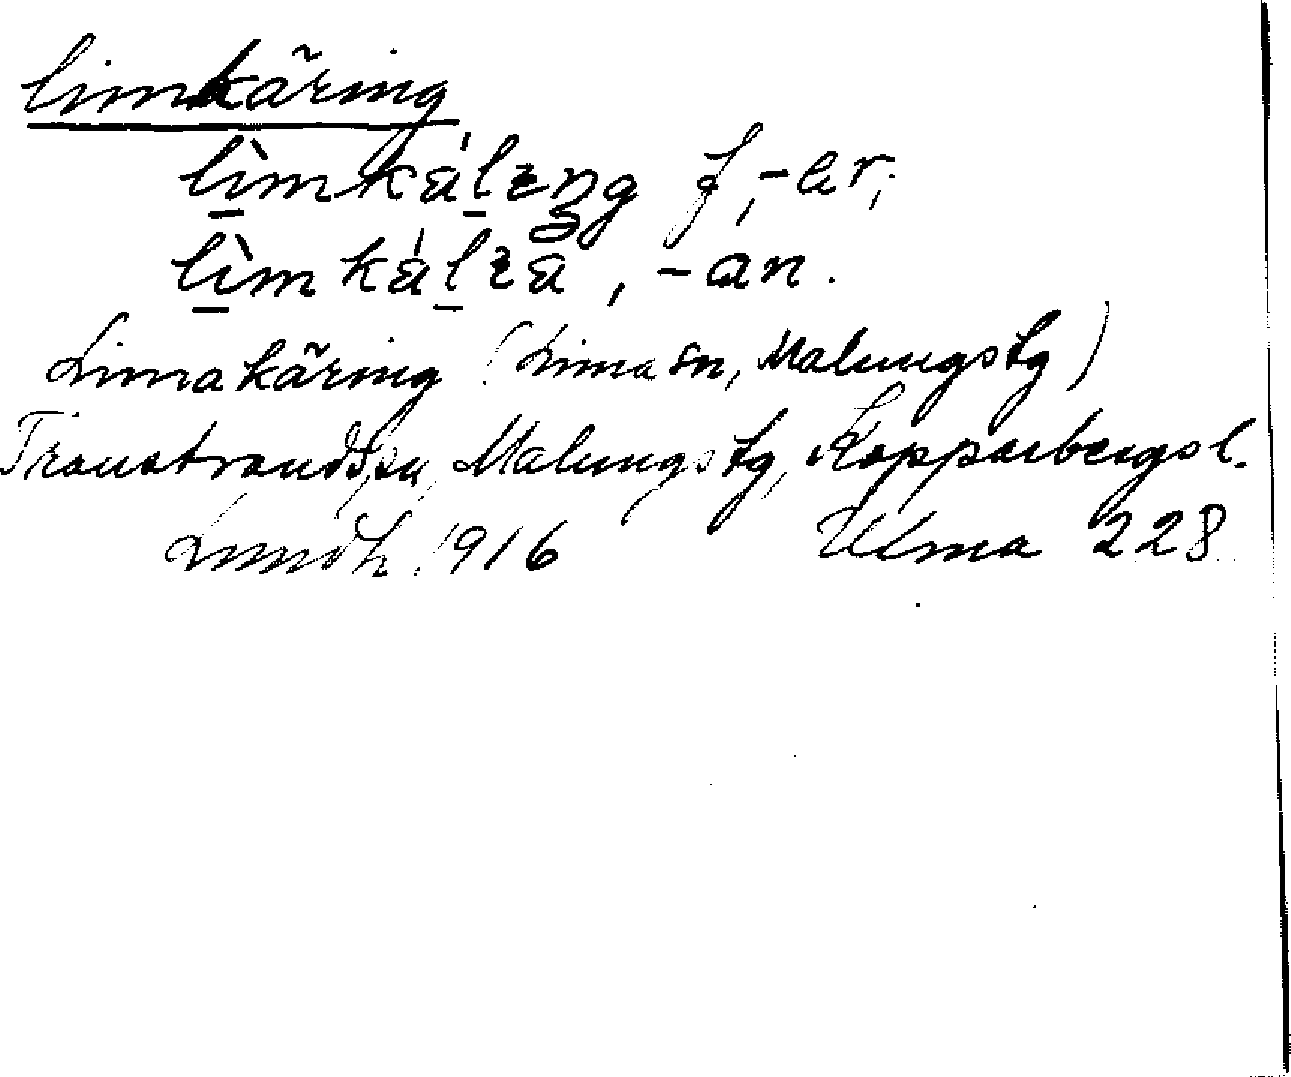 limkäring
lìmkálıng f, -ar;
lìmkálıa, -an.
Limakäring (Lima sn, Malungs tg)
Transtrands sn, Malungs tg, Kopparbergs l.
Lundh 1916 Ulma 228